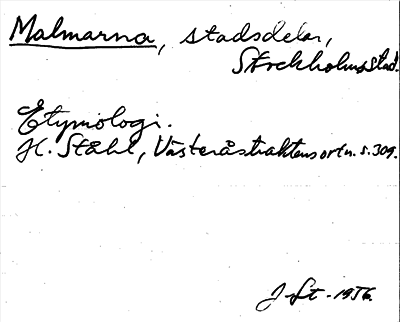 Malmarna, stadsdelar,
Stockholms stad.
Etymologi.
H. Ståhl, Västeråstraktens ortn. s. 309.
1956.